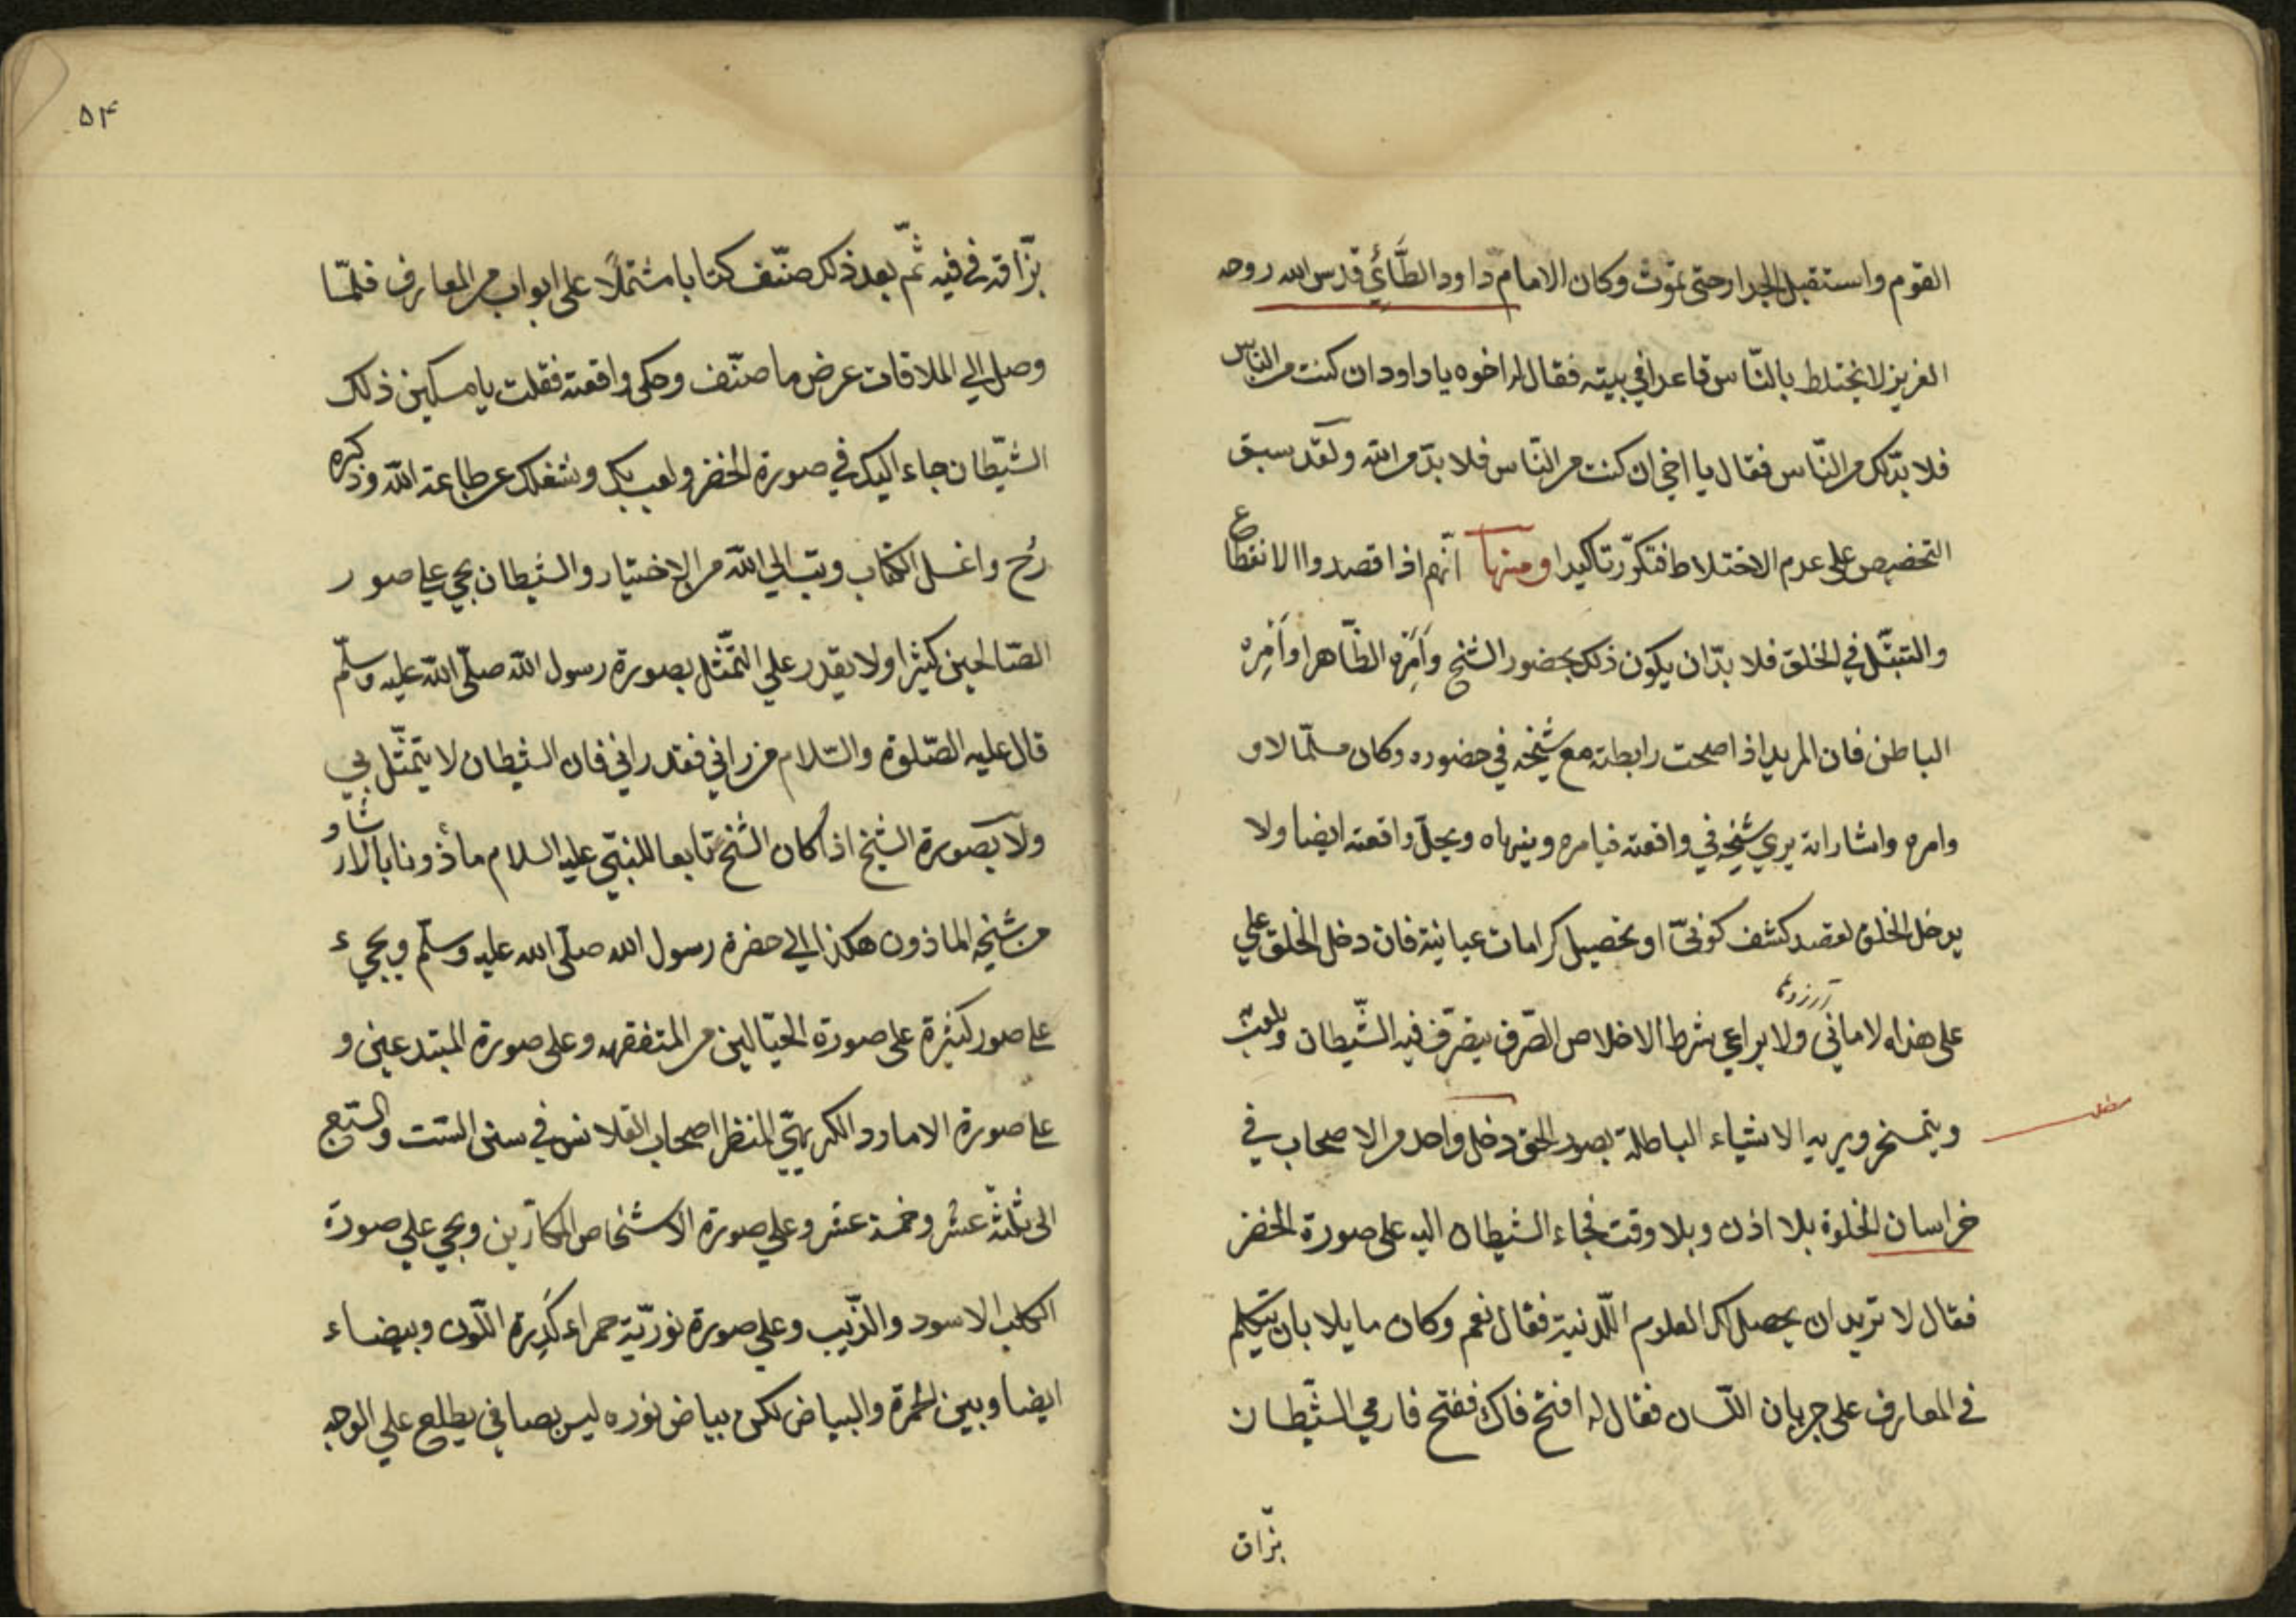 القوم واستقبل الجدار حتى تموت وكان الامام داود الطَّائي قدس الله روحه
العزيز لا يختلط بالنّاس قاعدا في بيته فقال له اخوه يا داود ان كنت من النّاس
فلا بدّ لك من النّاس فقال يا اخي ان كنت من النّاس فلا بدّ من الله ولقد سبق
التخصيص على عدم الاختلاط فتكرّر تاكيدا ومنها انّهم اذا قصدوا الانقطاع
والتبتّل في الخلق فلا بدّ ان يكون ذلك بحضور الشيخ وامره الظّاهر او امره
الباطن فان المريد اذا صحت رابطته مع شيخه في حضوره وكان مسلّما لاو
وامره واشاراته يري شيخه في واقعته فيامره وينهاه ويحلّ واقعته ايضا ولا
يدخل الخلق لقصد كشف كونيّ او تحصيل كرامات عيانية فان دخل الخلق علي
آرزوها
على هذه الاماني ولا يراعي شرط الاخلاص الصّرف يتصرّف فيه الشّيطان ويلعب
ويتمسخر ويريه الاشياء الباطلة بصور الحق دخل واحد من الاصحاب في
خراسان الخلوة بلا اذن وبلا وقت فجاء الشيطان اليه على صورة الخضر
فقال لا تريد ان يحصل لك العلوم اللّدنية فقال نعم وكان مايلا بان يتكلم
في المعارف على جريان اللّسان فقال له افتح فاك ففتح فارمي الشّيطان
بزّاق
۵۴
بزّاقه في فيه ثمّ بعد ذلك صنّف كتابا مشتملًا على ابواب من المعارف فلمّا
وصل الي الملاقات عرض ما صنّف وحكى واقعته فقلت يا مسكين ذلك
الشّيطان جاء اليك في صورة الخضر ولعب بك وشغلك عن طاعة الله وذكره
رُح واغسل الكتاب وتب الي الله من الاختيار والشيطان يجي علي صور
الصّالحين كثيرا ولا يقدر علي التمّثل بصورة رسول الله صلّى الله عليه وسلّم
قال عليه الصّلوة والسّلام من راني فقد راني فان الشيطان لا يتمثّل بي
ولا بصورة الشيخ اذا كان الشيخ تابعا للنبيّ عليه السلام ماذونا بالارشاد
من شيخه الماذون هكذا الي حضرة رسول الله صلّى الله عليه وسلّم ويجيء
علي صور كثيرة على صورة الحيّالين من المتفقهه وعلى صورة المبتدعين و
علي صورة الامارد الكريهيّ المنظر اصحاب القلانس في سنّ السّت والسّبع
الى ثلثة عشر وخمسة عشر وعلي صورة الاشخاص المكّارين ويجي علي صورة
الكلب الاسود والذّيب وعلي صورة نوريّة حمراء كَدِرة اللّون وبيضاء
ايضا وبين الحمرة والبياض لكن بياض نوره ليس بصافي يطلع علي الوجه